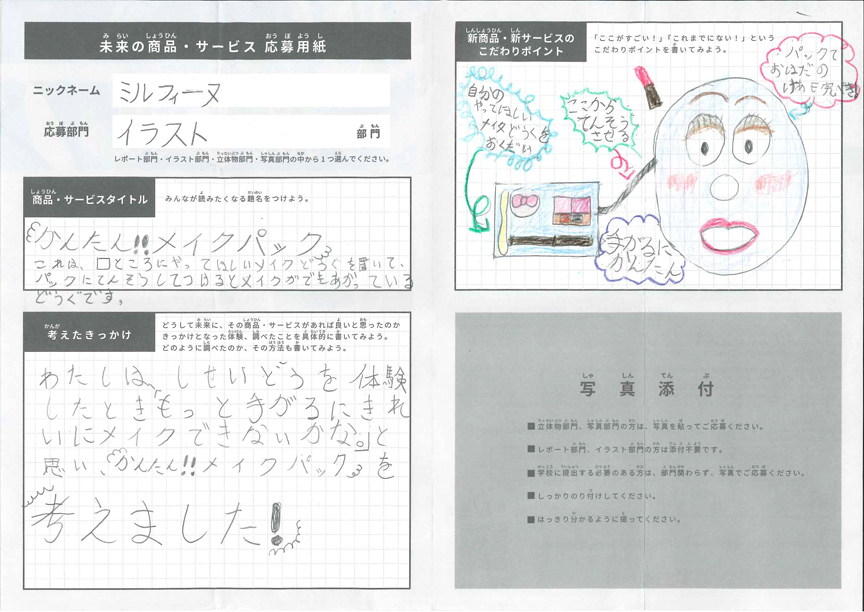 未来の商品・サービス 応募用紙
ニックネーム ミルフィーヌ
応募部門 イラスト 部門
レポート部門・イラスト部門・立体物部門・写真部門の中から1つ選んでください。
商品・サービスタイトル みんなが読みたくなる題名をつけよう。
かんたん!!メイクパック
これは、□ところにやってほしいメイクどうぐを置いて、
パックにてんそうしてつけるとメイクができあがっている
どうぐです。
考えたきっかけ
どうして未来に、その商品・サービスがあれば良いと思ったのか
きっかけとなった体験、調べたことを具体的に書いてみよう。
どのように調べたのか、その方法も書いてみよう。
わたしは、しせいどうを体験
したときもっと手がるにきれ
いにメイクできないかな。」と
思い、かんたん!!メイクパックを
考えました!
新商品・新サービスの
こだわりポイント
「ここがすごい!」「これまでにない!」という
こだわりポイントを書いてみよう。
自分の
やってほしい
メイクどうぐを
おくだい
ここから
てんそう
させる
パックで
おはだの
手がるに
かんたん
写真添付
■立体物部門、写真部門の方は、写真を貼ってご応募ください。
■レポート部門、イラスト部門の方は添付不要です。
■学校に提出する必要のある方は、部門関わらず、写真でご応募ください。
■しっかりのり付けしてください。
■はっきり分かるように撮ってください。